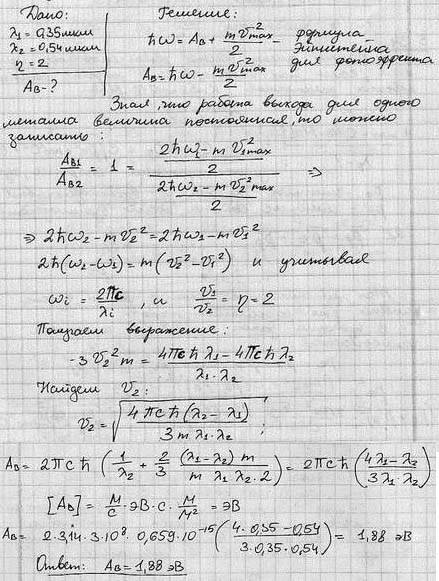 Дано:
λ₁ = 0,35 мкм
λ₂ = 0,54 мкм
η = 2
Aв - ?
Решение:
ħω = Aв + mv²max/2 - формула Эйнштейна для фотоэффекта
Aв = ħω - mv²max/2
Зная, что работа выхода для одного
металла величина постоянная, то можно
записать:
Aв1/Aв2 = 1 = ((2ħω₁ - mv₁²max)/2)/((2ħω₂ - mv₂²max)/2) ⇒
⇒ 2ħω₂ - mv₂² = 2ħω₁ - mv₁²
2ħ(ω₂ - ω₁) = m(v₂² - v₁²) и учитывая
ωi = 2πc/λi, и v₁/v₂ = η = 2
Получаем выражение:
-3v₂²m = (4πcħλ₁ - 4πcħλ₂)/(λ₁·λ₂)
Найдем v₂:
v₂ = √(4πcħ(λ₂ - λ₁)/(3mλ₁λ₂));
Aв = 2πcħ(1/λ₂ + 2/3 (λ₁-λ₂)m/(mλ₁λ₂·2)) = 2πcħ((4λ₁-λ₂)/(3λ₁λ₂))
[Aв] = м/с · эВ·с · м/м² = эВ
Aв = 2·3,14·3·10⁸·0,659·10⁻¹⁵((4·0,35-0,54)/(3·0,35·0,54)) = 1,88 эВ
Ответ: Aв = 1,88 эВ